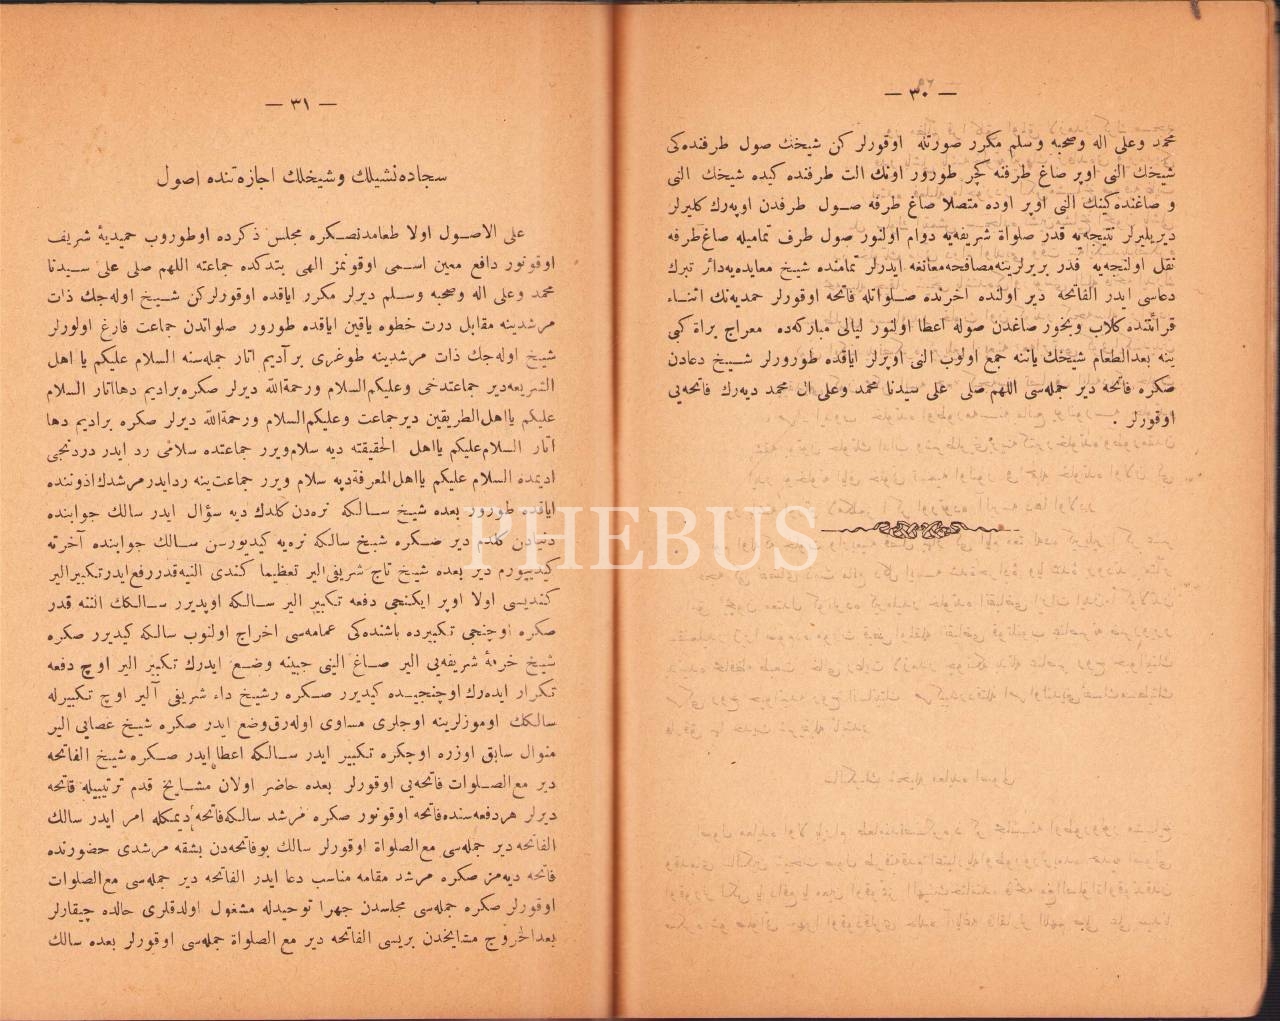 — ٣٠ —
محمد وعلى اله وصحبه وسلم مكرر صورتله اوقورلر كن شيخك صول طرفنده كى
شيخك النى اوپر صاغ طرفنه كچر طورور اونك الت طرفنده كيده شيخك النى
و صاغنده كينك النى اوپر اوده متصلا صاغ طرفه صول طرفدن اوپه رك كليرلر
ديزيليرلر نتيجه يه قدر صلواة شريفه يه دوام اولنور صول طرف تماميله صاغ طرفه
نقل اولنجه يه قدر بربرلرينه مصافحه معانقه ايدرلر تمامنده شيخ معايده يه دائر تبرك
دعاسى ايدر الفاتحه دير اولنده اخرنده صلواتله فاتحه اوقورلر حمديه نك اثناء
قرائتنده كلاب وبخور صاغدن صوله اعطا اولنور ليالى مباركه ده معراج براة كبى
ينه بعدالطعام شيخك ياننه جمع اولوب النى اوپرلر اياقده طورورلر شيخ دعادن
صكره فاتحه دير جمله سى اللهم صلى على سيدنا محمد وعلى ال محمد ديه رك فاتحه يى
اوقورلر .
— ٣١ —
سجاده نشيلك و شيخلك اجازه تنده اصول
على الاصول اولا طعامدنصكره مجلس ذكرده اوطوروب حميدية شريف
اوقونور دافع معين اسمى اوقونمز الهى بتدكده جماعته اللهم صلى على سيدنا
محمد وعلى اله وصحبه وسلم ديرلر مكرر اياقده اوقورلركن شيخ اوله جك ذات
مرشدينه مقابل درت خطوه ياقين اياقده طورور صلواتدن جماعت فارغ اولورلر
شيخ اوله جك ذات مرشدينه طوغرى بر آديم اتار جمله سنه السلام عليكم يا اهل
الشريعه دير جماعتدخى وعليكم السلام ورحمة الله ديرلر صكره براديم دها اتار السلام
عليكم يا اهل الطريقين دير جماعت وعليكم السلام ورحمة الله ديرلر صكره براديم دها
اتار السلام عليكم يا اهل الحقيقته ديه سلام ويرر جماعتده سلامى رد ايدر دردنجى
اديمده السلام عليكم يا اهل المعرفة ديه سلام ويرر جماعت ينه رد ايدر مرشدك اذوننده
اياقده طورور بعده شيخ سالكه نره دن كلدك ديه سؤال ايدر سالك جوابنده
دنيادن كلدم دير صكره شيخ سالكه نره يه كيديورسن سالك جوابنده آخرته
كيدييورم دير بعده شيخ تاج شريفى الير تعظيما كندى النيه قدر رفع ايدر تكبير الير
كنديسى اولا اوپر ايكنجى دفعه تكبير الير سالكه اوپديرر سالكك الننه قدر
صكره اوچنجى تكبيرده باشنده كى عمامه سى اخراج اولنوب سالكه كيديرر صكره
شيخ خرقۀ شريفه يى الير صاغ النى جيبنه وضع ايدرك تكبير الير اوچ دفعه
تكرار ايده رك اوچنجيسده كيديرر صكره رشيخ داء شريفى آلير اوچ تكبيرله
سالكك اوموزلرينه اوجلرى مساوى اوله رق وضع ايدر صكره شيخ عصايى الير
منوال سابق اوزره اوچكره تكبير ايدر سالكه اعطا ايدر صكره شيخ الفاتحه
دير مع الصلوات فاتحه يى اوقورلر بعده حاضر اولان مشايخ قدم ترتيبيله فاتحه
ديرلر هر دفعه سنده فاتحه اوقونور صكره مرشد سالكه فاتحه ديمكله امر ايدر سالك
الفاتحه دير جمله سى مع الصلواة اوقورلر سالك بو فاتحه دن بشقه مرشدى حضورنده
فاتحه ديه مز صكره مرشد مقامه مناسب دعا ايدر الفاتحه دير جمله سى مع الصلوات
اوقورلر صكره جمله سى مجلسدن جهرا توحيدله مشغول اولدقلرى حالده چيقارلر
بعد الخروج مشايخدن بريسى الفاتحه دير مع الصلواة جمله سى اوقورلر بعده سالك
PHEBUS